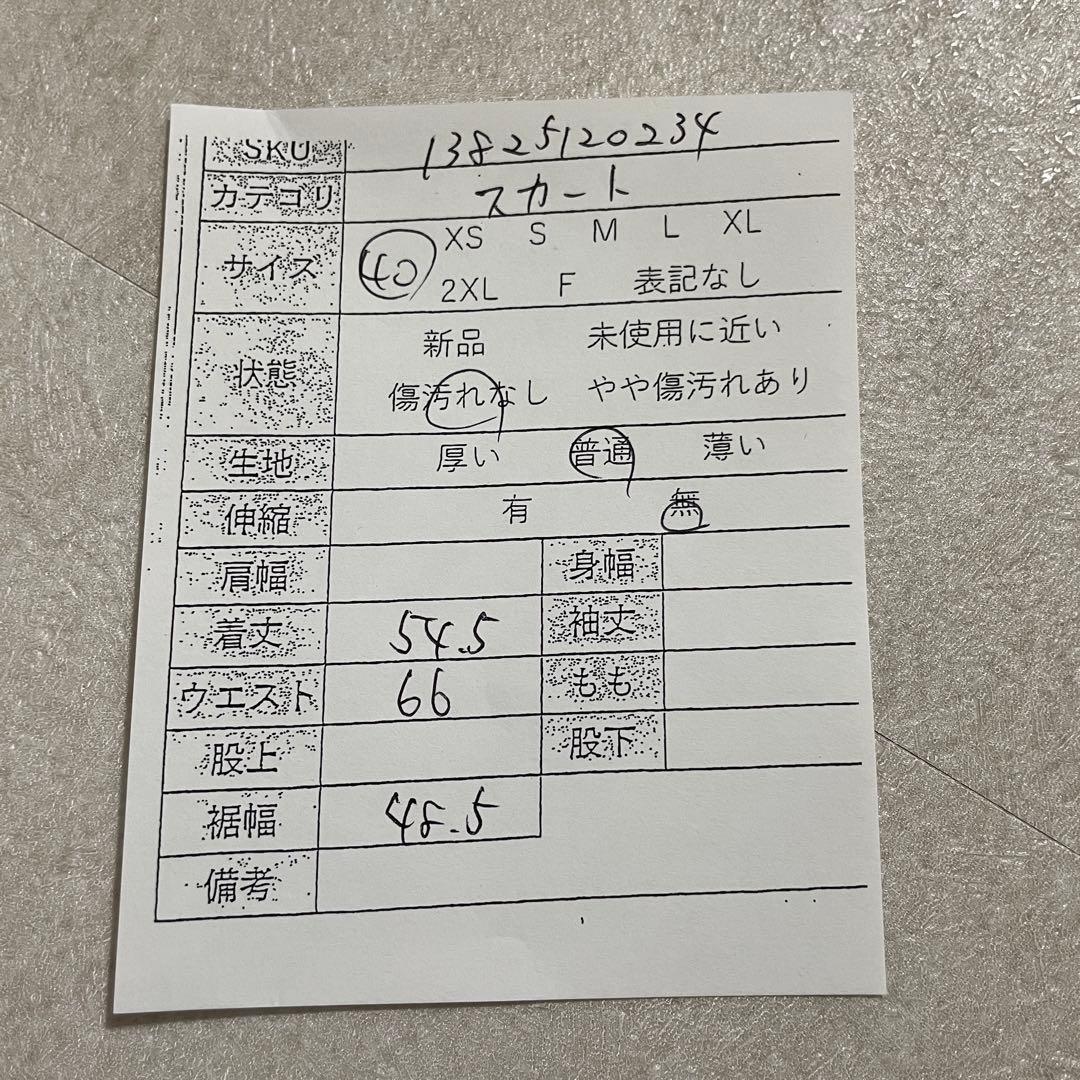 SKU 13825120234
カテゴリ スカート
サイズ 40 XS S M L XL
2XL F 表記なし
状態 新品 未使用に近い
傷汚れなし やや傷汚れあり
生地 厚い 普通 薄い
伸縮 有 無
肩幅 身幅
着丈 54.5 袖丈
ウエスト 66 もも
股上 股下
裾幅 48.5
備考